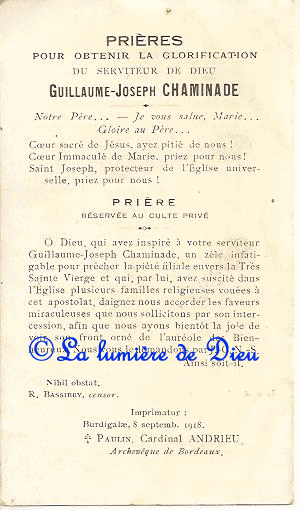 PRIÈRES
POUR OBTENIR LA GLORIFICATION
DU SERVITEUR DE DIEU
GUILLAUME-JOSEPH CHAMINADE
Notre Père... — Je vous salue, Marie...
Gloire au Père...
Cœur sacré de Jésus, ayez pitié de nous !
Cœur Immaculé de Marie, priez pour nous !
Saint Joseph, protecteur de l'Eglise univer-
selle, priez pour nous !
PRIÈRE
RÉSERVÉE AU CULTE PRIVÉ
O Dieu, qui avez inspiré à votre serviteur
Guillaume-Joseph Chaminade, un zèle infati-
gable pour prêcher la piété filiale envers la Très
Sainte Vierge et qui, par lui, avez suscité dans
l'Eglise plusieurs familles religieuses vouées à
cet apostolat, daignez nous accorder les faveurs
miraculeuses que nous sollicitons par son inter-
cession, afin que nous ayons bientôt la joie de
voir son front orné de l'auréole des Bien-
heureux. Nous vous le demandons par J. N.-S.
©La lumière de Dieu
Ainsi soit-il.
Nihil obstat.
R. BASSIBEY, censor.
Imprimatur :
Burdigalæ, 8 septemb. 1918.
PAULIN, Cardinal ANDRIEU,
Archevêque de Bordeaux.